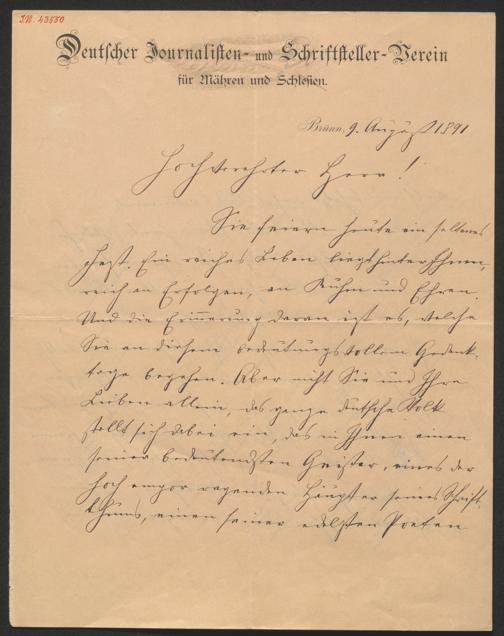 I.N. 43550
Deutscher Journalisten- und Schriftsteller-Verein
für Mähren und Schlesien.
Brünn, 9. August 1891
Hochverehrter Herr!
Sie feiern heute ein seltenes
Fest. Ein reiches Leben liegt hinter Ihnen,
reich an Erfolgen, an Ruhm und Ehren.
Und die Erinnerung daran ist es, welche
Sie an diesem bedeutungsvollem Gedenk-
tage begehen. Aber nicht Sie und Ihre
Lieben allein, das ganze deutsche Volk
stellt sich dabei ein, das in Ihnen einen
seiner bedeutendsten Geister, eines der
hoch empor ragenden Häupter seines Schrift-
thums, einen seiner edelsten Poeten